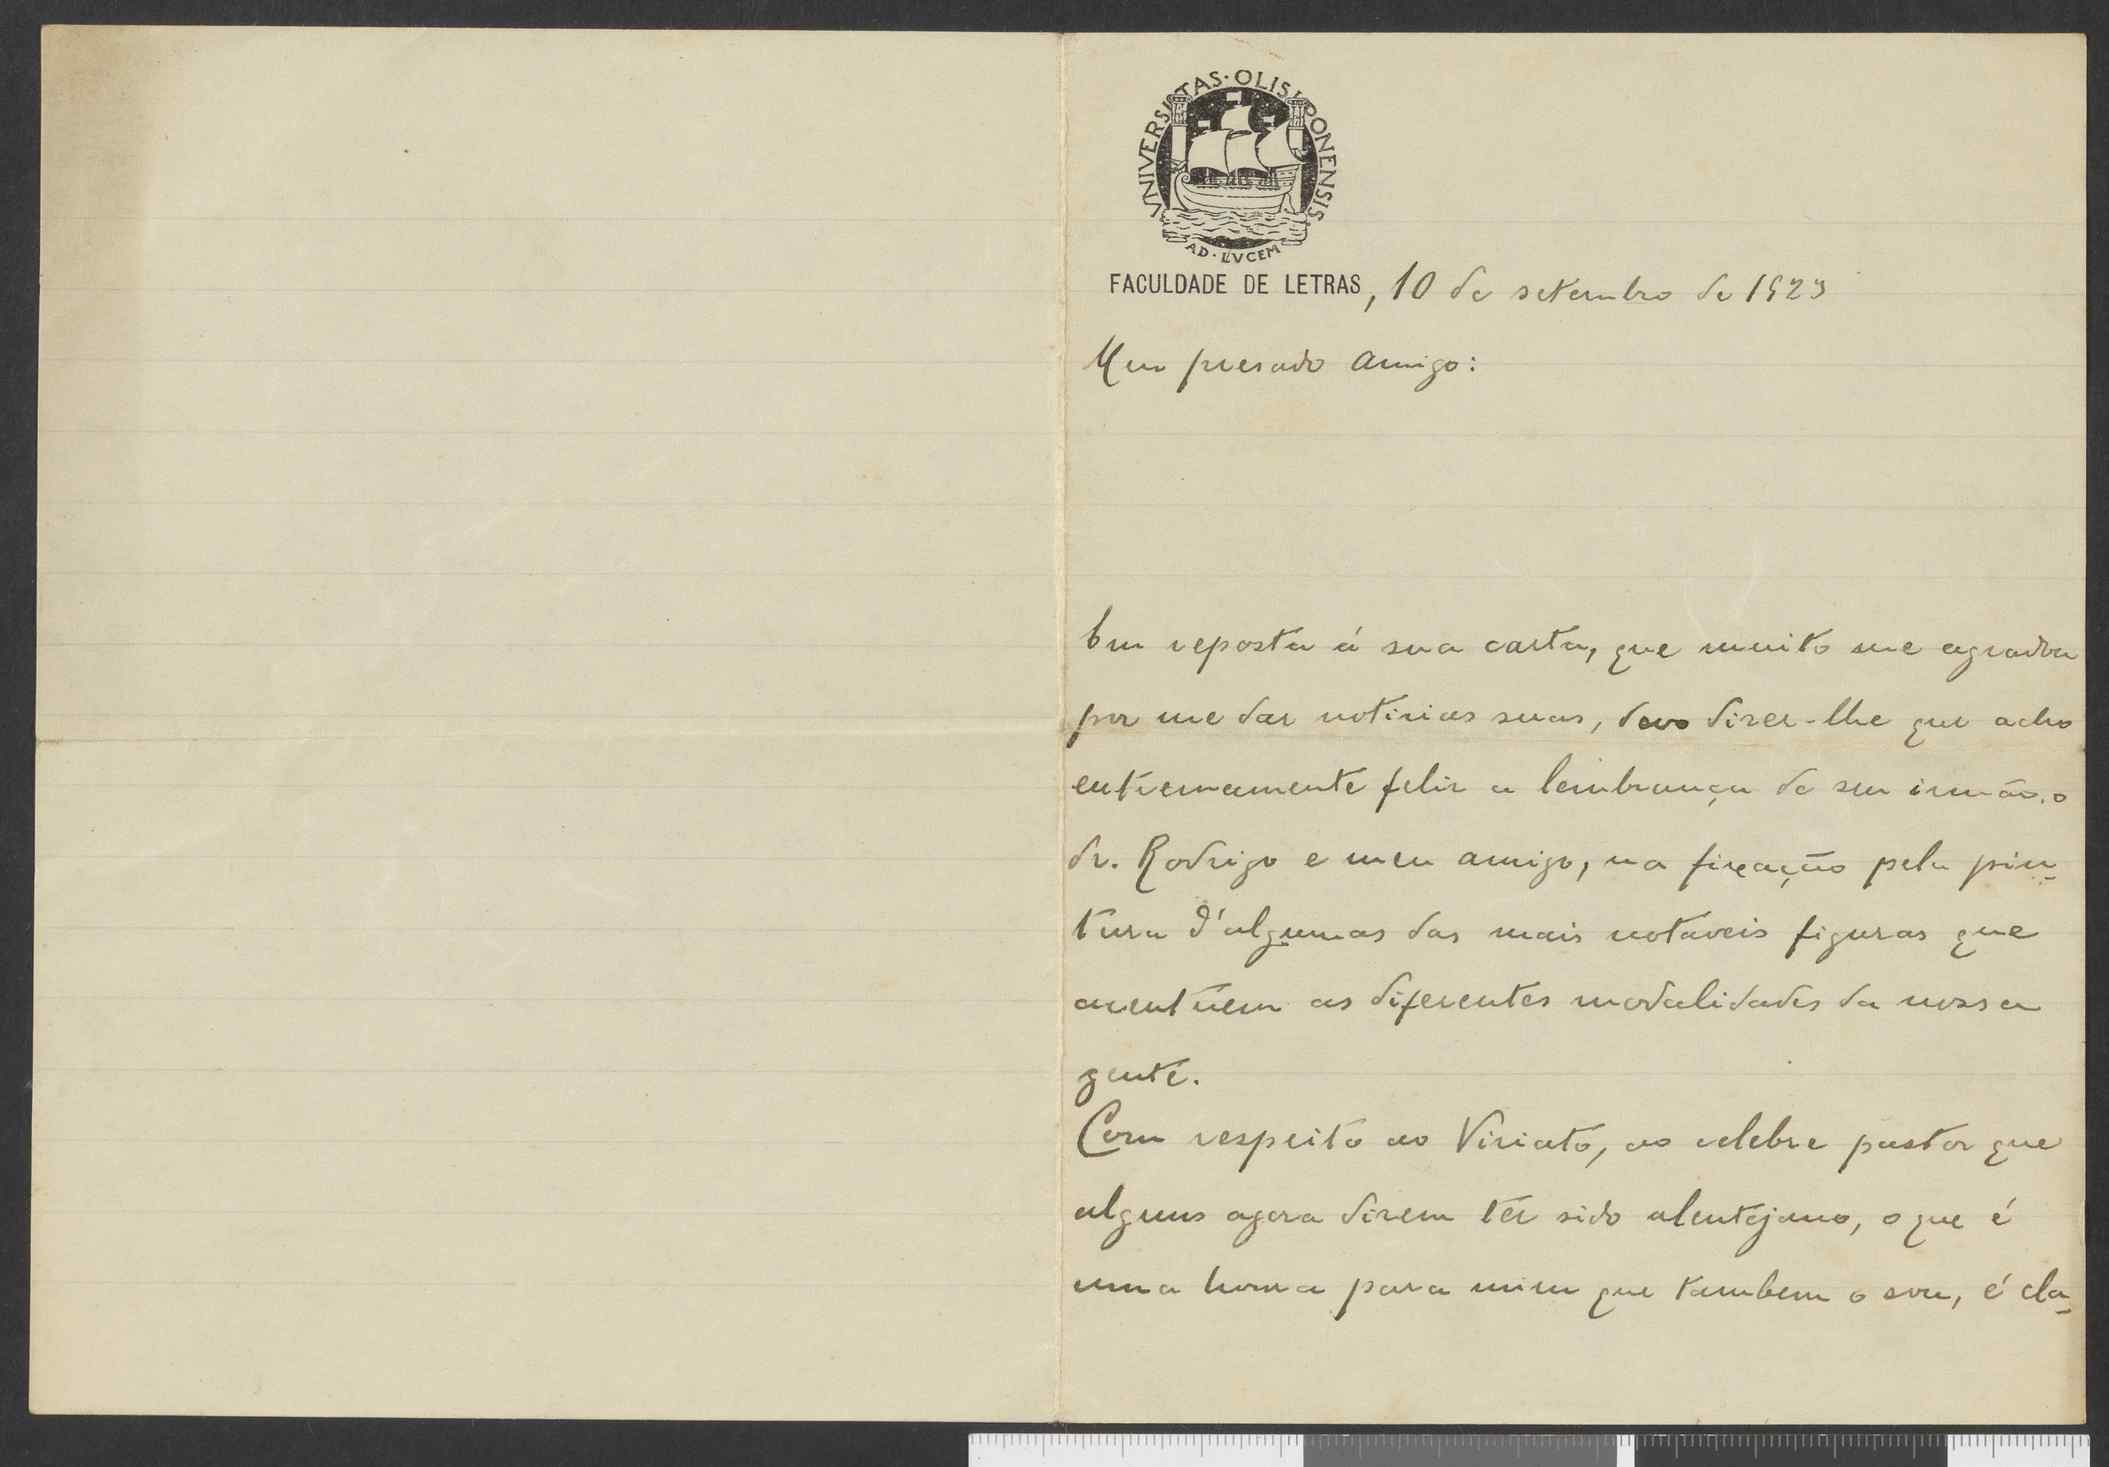 VNIVERSITAS·OLISIPONENSIS
AD·LVCEM
FACULDADE DE LETRAS, 10 de setembro de 1923
Meu presado amigo:
Em reposta á sua carta, que muito me agradou
por me dar noticias suas, devo dizer-lhe que acho
extremamente feliz a lembrança de seu irmão, o
dr. Rodrigo e meu amigo, na fixação pela pin-
tura d'algumas das mais notaveis figuras que
acentúem as diferentes modalidades da nossa
gente.
Com respeito ao Viriato, ao celebre pastor que
alguns agora dizem ter sido alentejano, o que é
uma honra para mim que tambem o sou, é cla-